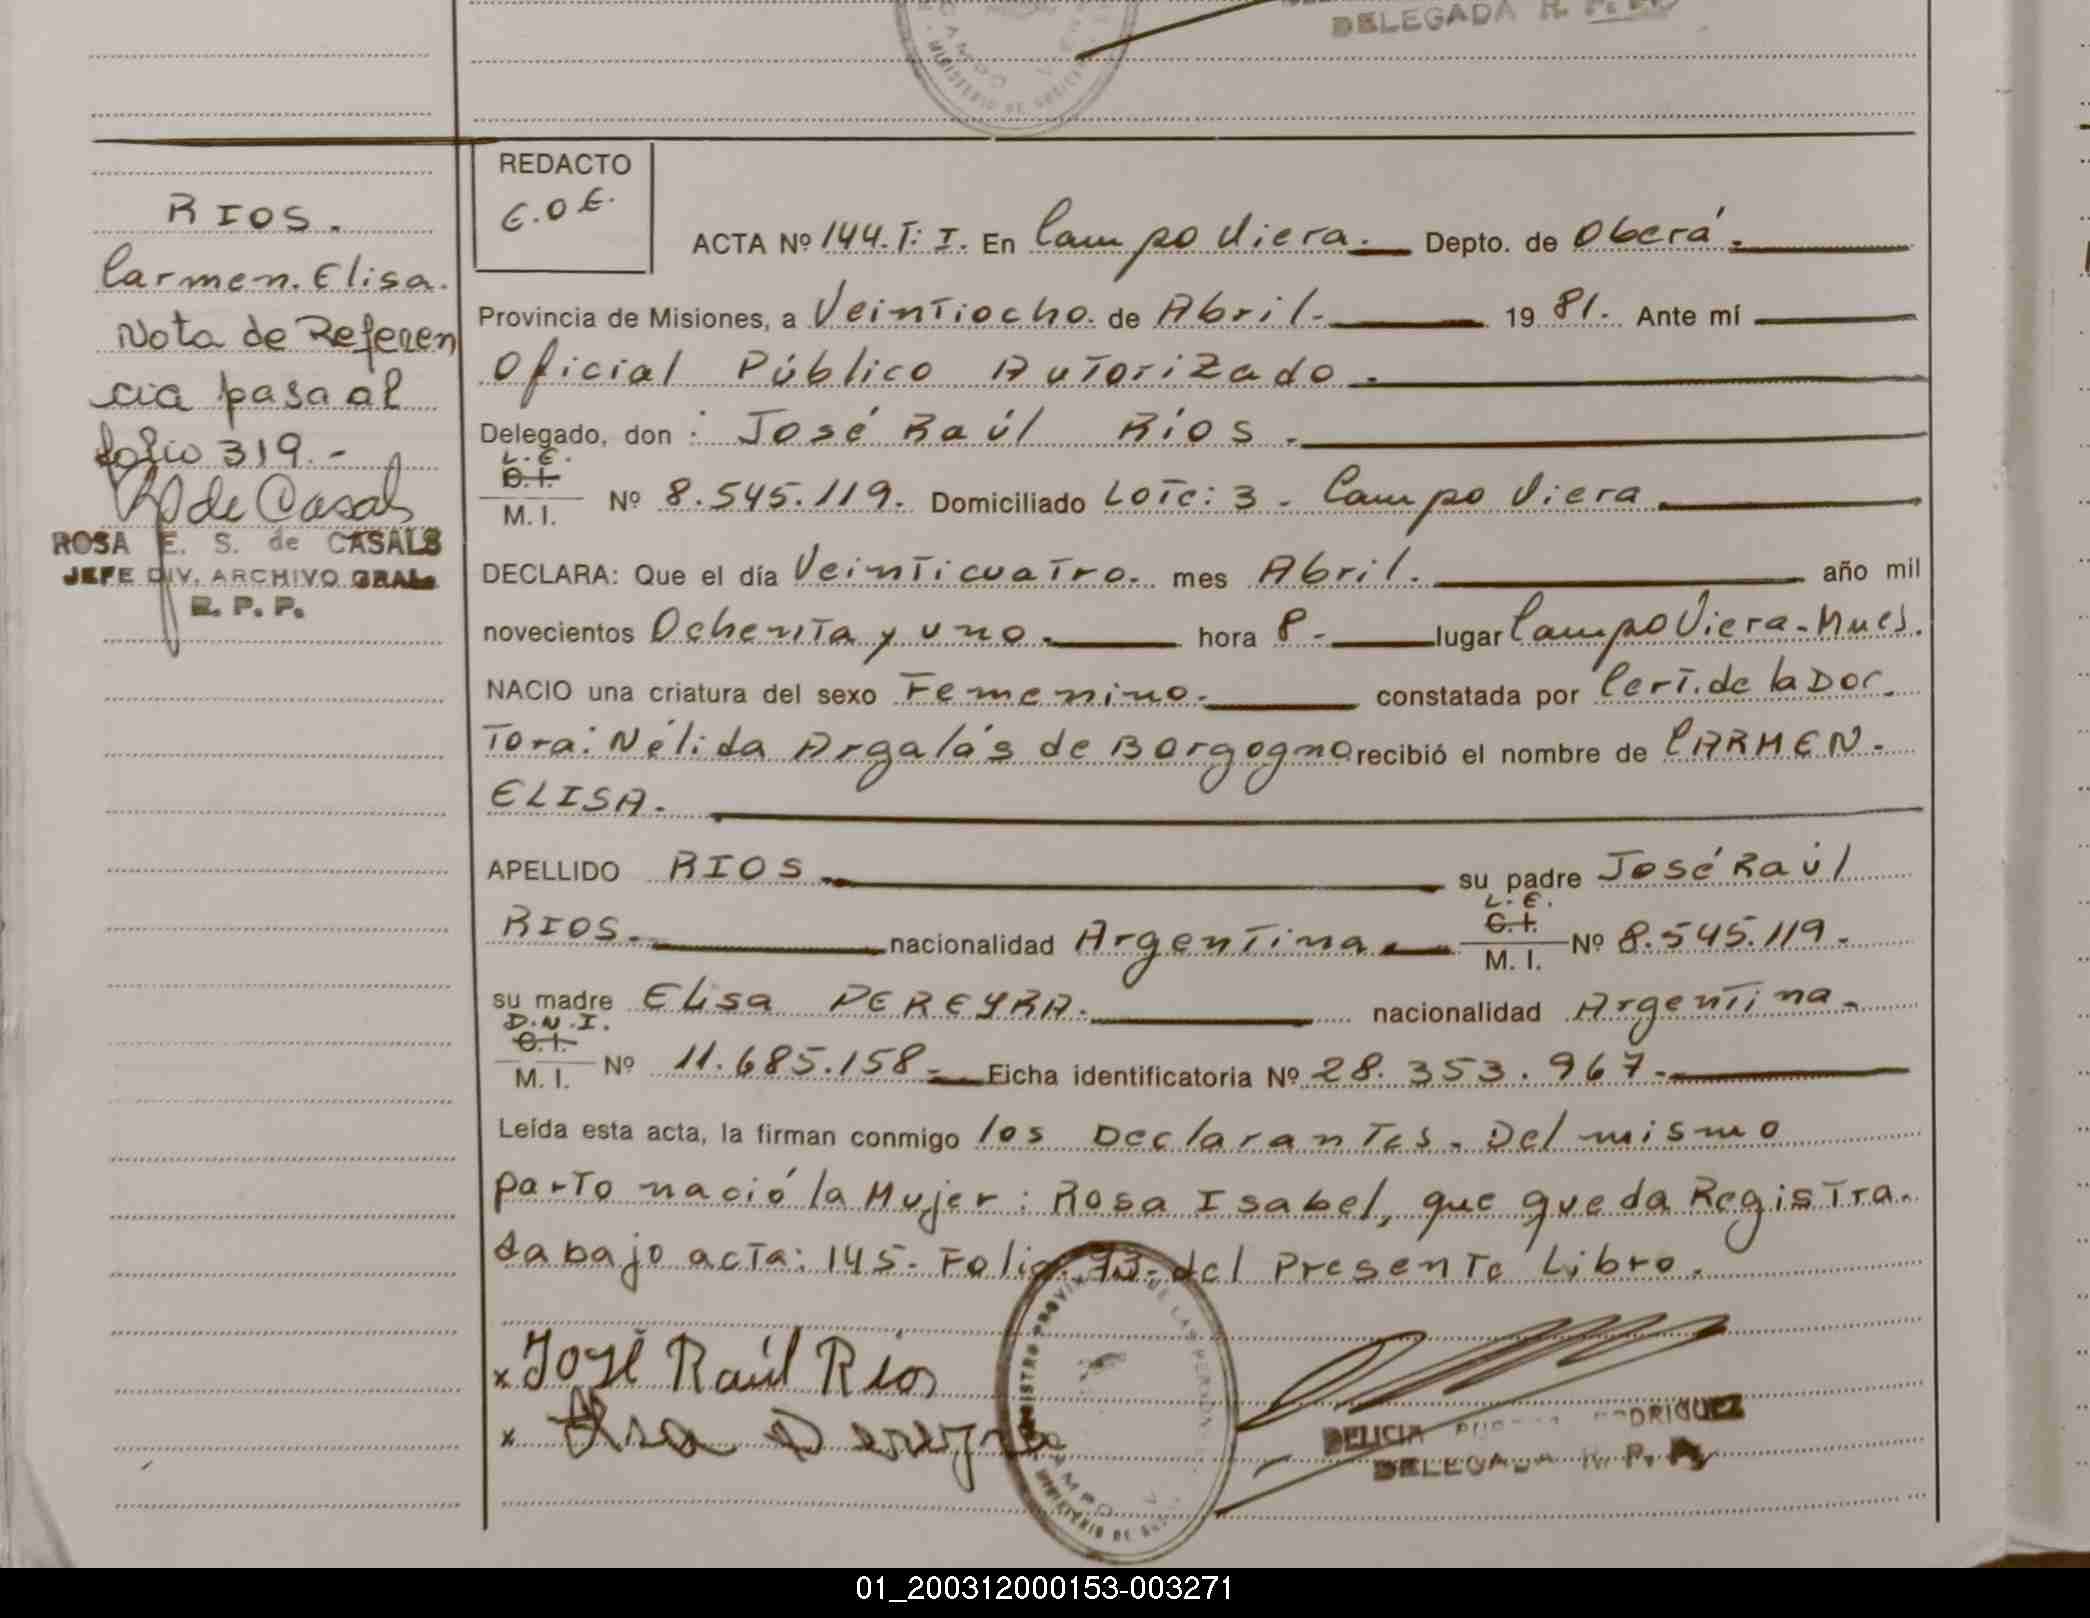 DELEGADA R. P. P.
REDACTO
E.O.E.
RIOS.
Carmen. Elisa.
Nota de Referen
cia pasa al
folio 319.-
R de Casals
ROSA E. S. de CASALS
JEFE DIV. ARCHIVO GRAL.
R. P. P.
ACTA Nº 144. T: I. En Campo Viera. Depto. de Oberá.
Provincia de Misiones, a Veintiocho. de Abril. 19 81. Ante mí
Oficial Público Autorizado.
Delegado, don : José Raúl Ríos.
L.E.
C.I.
M. I. Nº 8.545.119. Domiciliado Lote: 3 - Campo Viera
DECLARA: Que el día Veinticuatro. mes Abril. año mil
novecientos Ochenta y uno. hora 8.- lugar Campo Viera-Mnes.
NACIO una criatura del sexo Femenino. constatada por Cert. de la Doc-
tora: Nélida Argalás de Borgogno recibió el nombre de CARMEN.
ELISA.
APELLIDO RIOS. su padre José Raúl
RIOS. nacionalidad Argentina
L.E.
C.I.
M. I. Nº 8.545.119.
su madre Elisa PEREYRA. nacionalidad Argentina.
D.N.I.
C.I.
M. I. Nº 11.685.158. Ficha identificatoria Nº 28.353.967.
Leída esta acta, la firman conmigo los Declarantes. Del mismo
parto nació la Mujer : Rosa Isabel, que queda Registra-
da bajo acta: 145. Folio. 73. del Presente Libro.
x José Raúl Ríos
x Elsa Pereyra
DELICIA RODRIGUEZ
DELEGADA R. P. P.
01_200312000153-003271